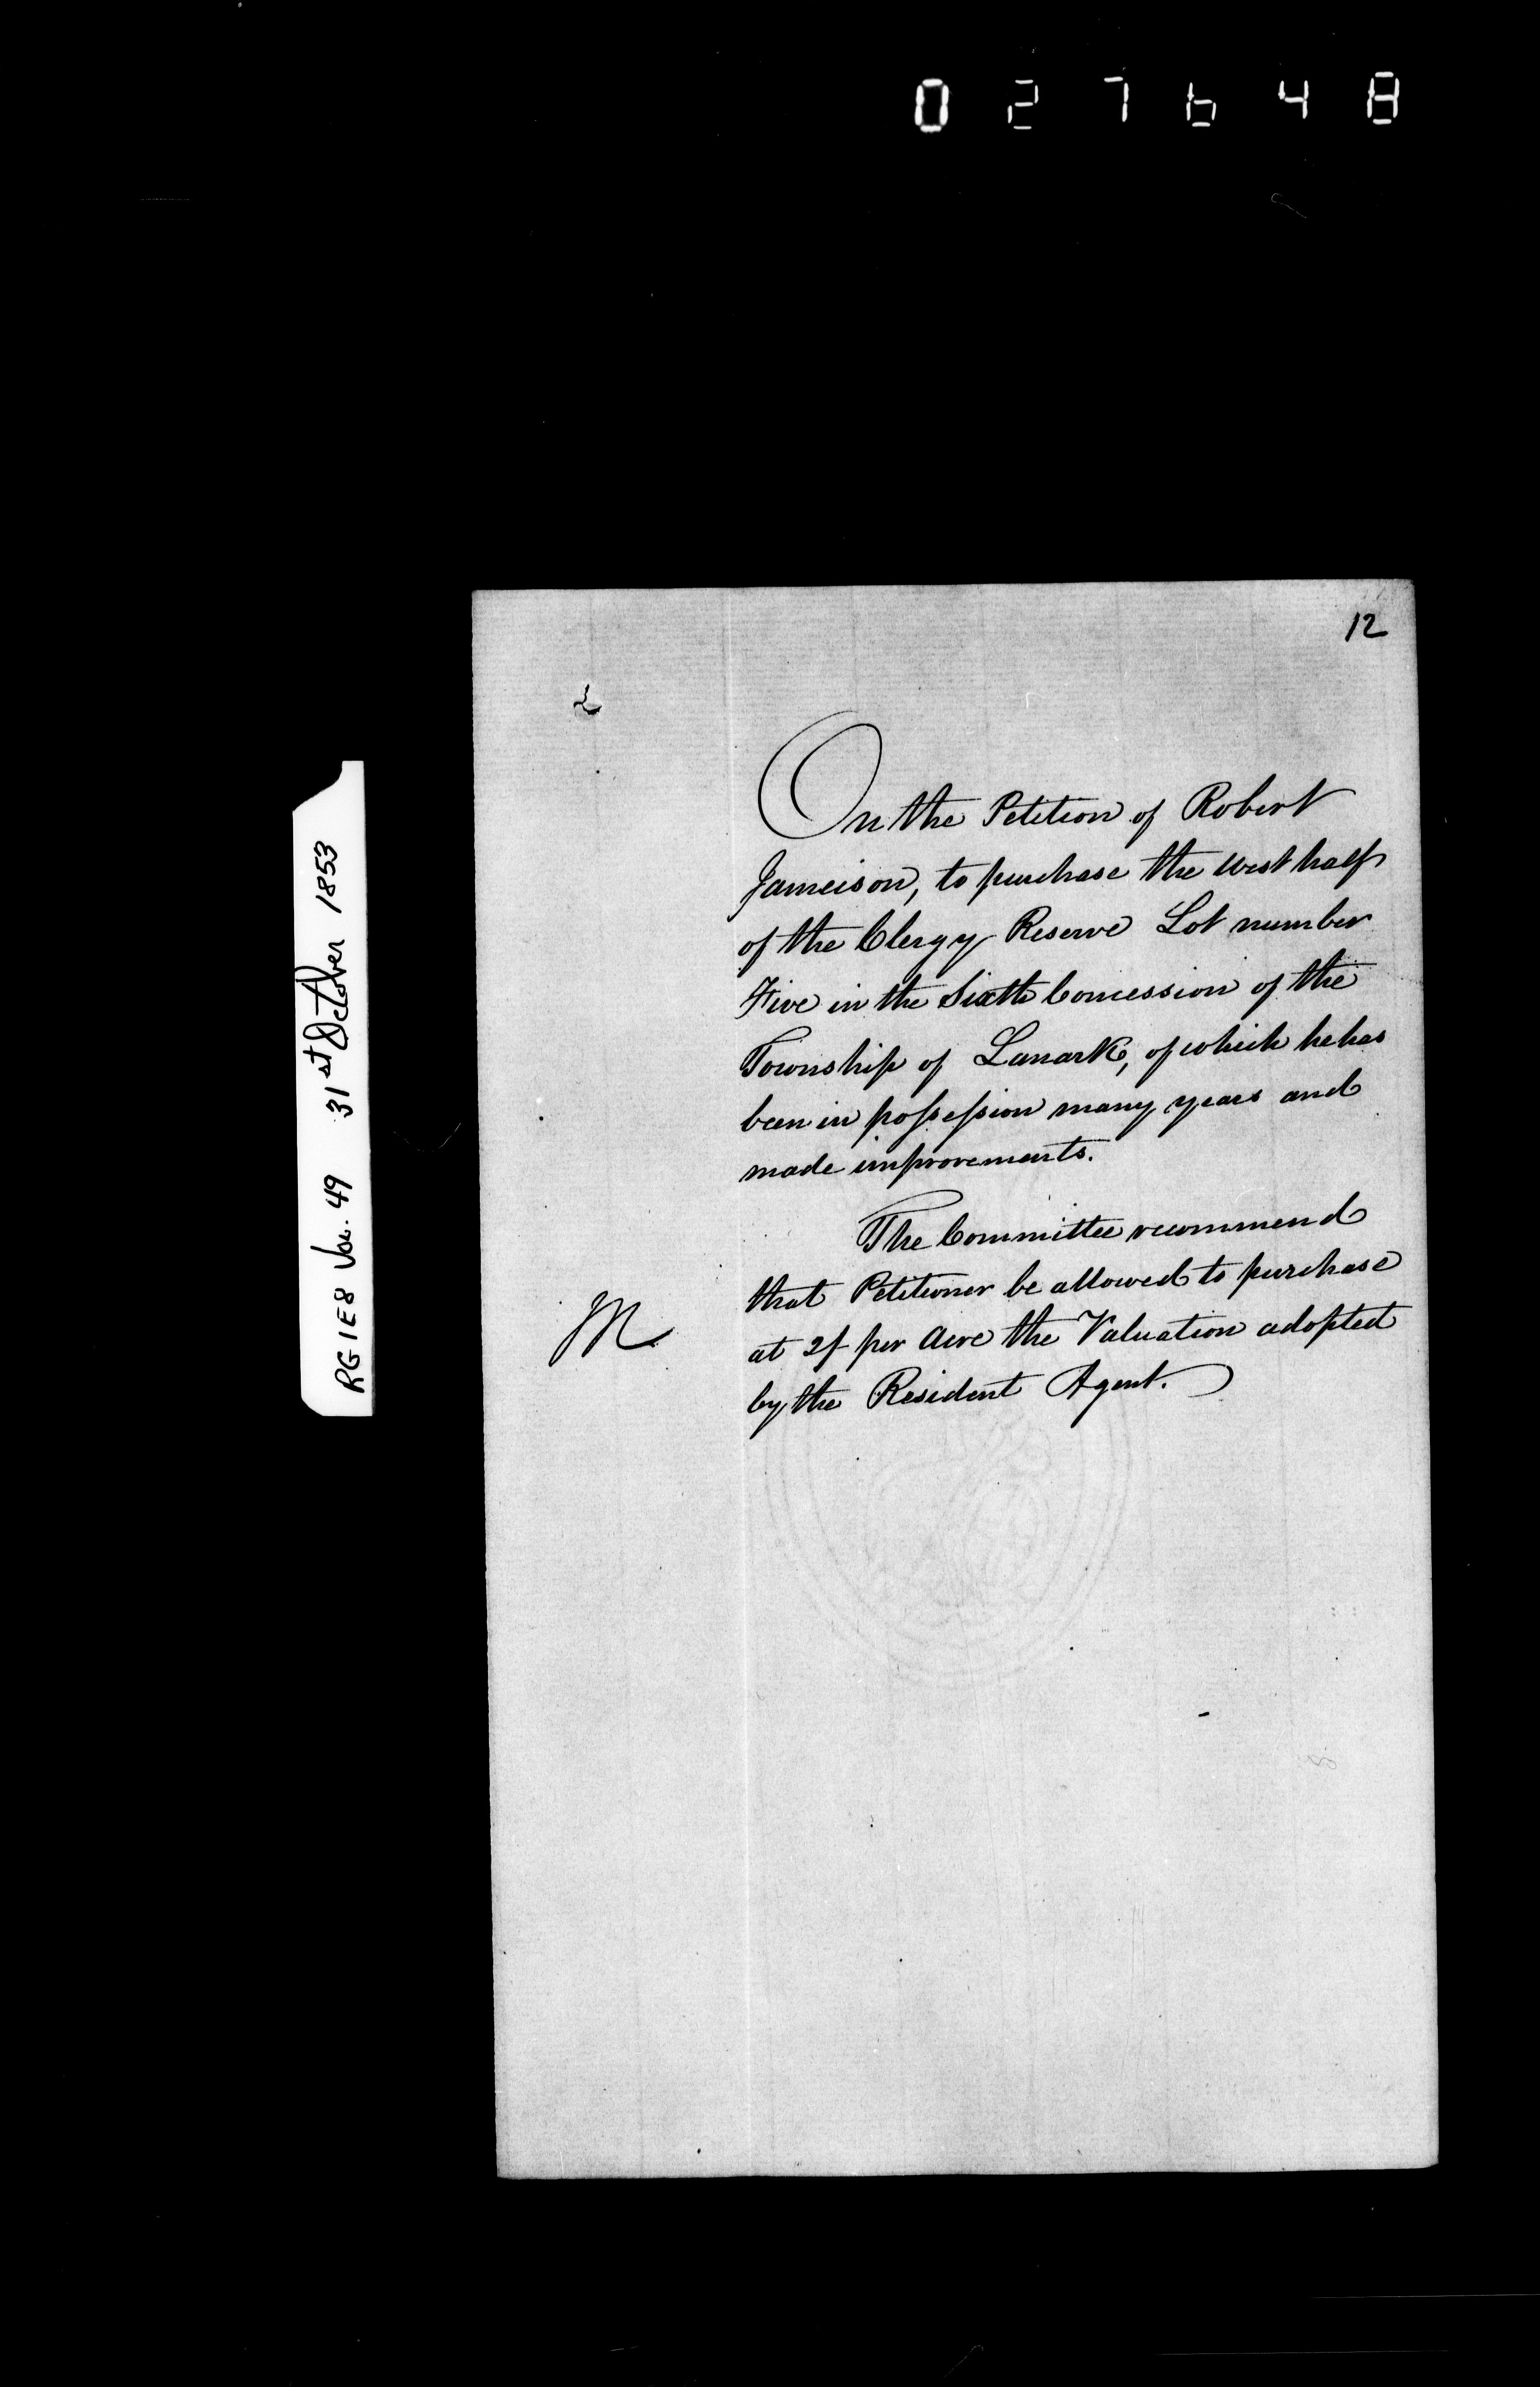 027648
12
On the Petition of Robert
Jameison, to purchase the west half
of the Clergy Reserve Lot number
Five in the Sixth Concession of the
Township of Lanark, of which he has
been in possession many years and
made improvements.
The Committee recommend
that Petitioner be allowed to purchase
at 2/ per Acre the Valuation adopted
by the Resident Agent.
M
RG1E8 Vol. 49 31st October 1853